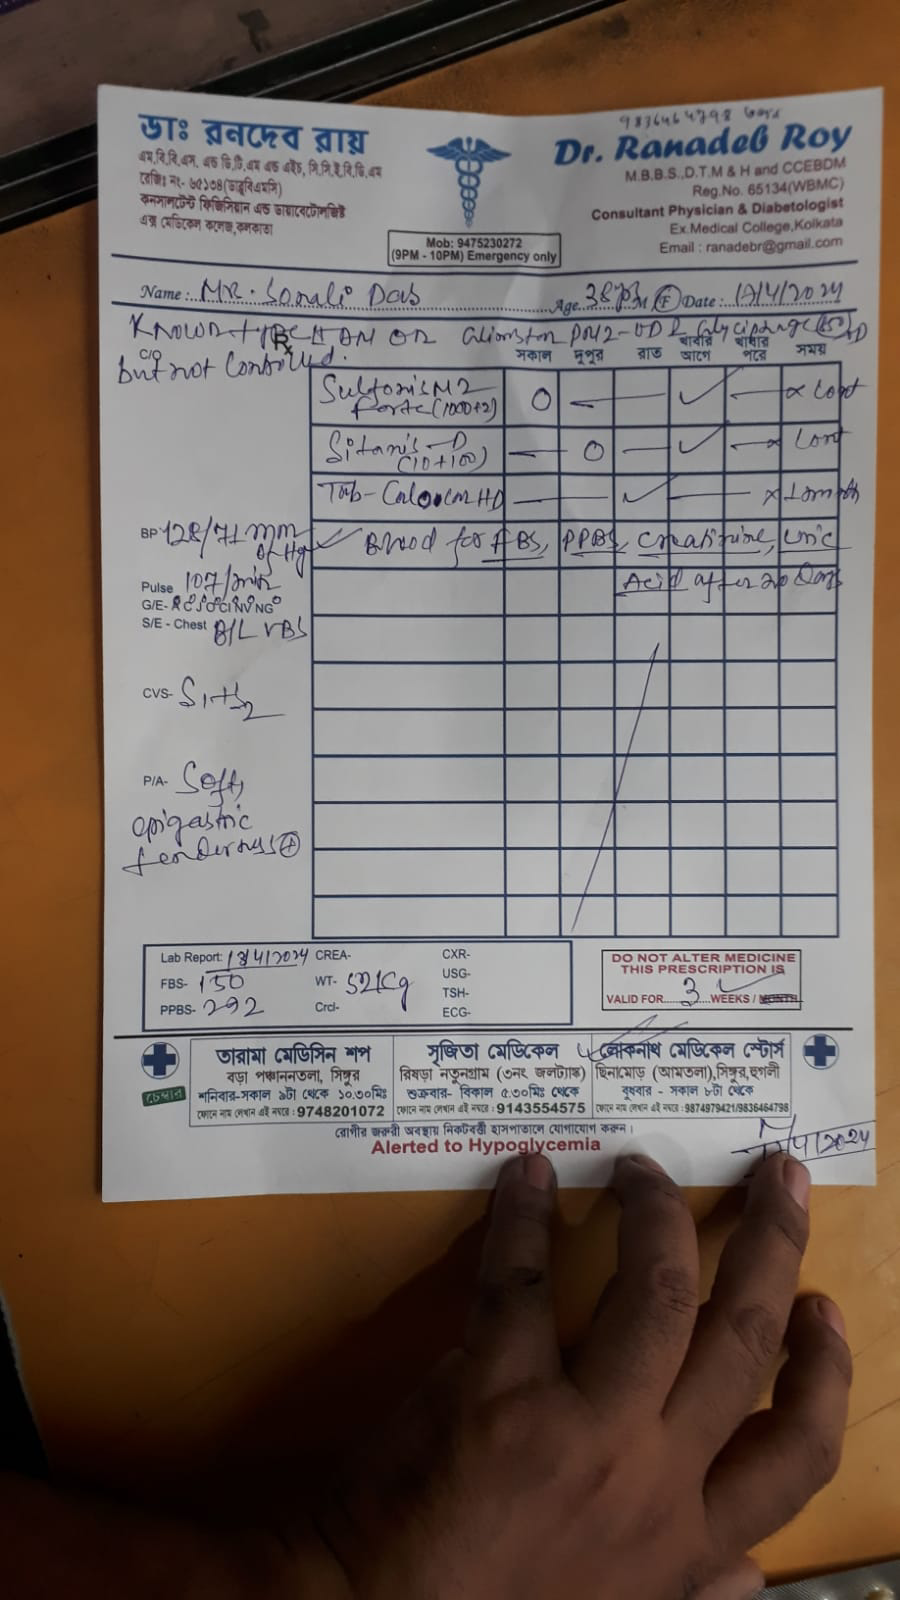 9836464798
ডাঃ রনদেব রায়
এম.বি.বি.এস. এন্ড ডি.টি.এম এন্ড এইচ, সি.সি.ই.বি.ডি.এম
রেজিঃ নং- ৬৫১৩৪(ডাব্লুবিএমসি)
কনসালটেন্ট ফিজিসিয়ান এন্ড ডায়াবেটোলজিষ্ট
এক্স মেডিকেল কলেজ,কলকাতা
Dr. Ranadeb Roy
M.B.B.S.,D.T.M & H and CCEBDM
Reg.No. 65134(WBMC)
Consultant Physician & Diabetologist
Ex.Medical College,Kolkata
Email : ranadebr@gmail.com
Mob: 9475230272
(9PM - 10PM) Emergency only
Name : MR. Sonali Das Age 38 M F Date : 17/4/2024
KNOWN DM ON PM2-OD
but not Controlled.
Rx
C/O
সকাল দুপুর রাত খাবার আগে খাবার পরে সময়
M2
Forte (1000+2) O — — ✓ — Cont
D
(10+100) — O — ✓ — Cont
Tab- HD — — ✓ — — x 1 month
BP 128/71 mm of Hg
✓ Blood for FBS, PPBS, Creatinine, Uric
Acid after 20 Days
Pulse 107/min
G/E-
S/E - Chest B/L VBS
CVS- S1+S2
P/A- Soft,
epigastric
tenderness +
Lab Report: /4/2024 CREA- CXR-
FBS- 150 WT- 52kg USG-
TSH-
PPBS- 292 Crcl- ECG-
DO NOT ALTER MEDICINE
THIS PRESCRIPTION IS
VALID FOR 3 WEEKS / MONTH
চেম্বার
তারামা মেডিসিন শপ
বড়া পঞ্চাননতলা, সিঙ্গুর
শনিবার-সকাল ৯টা থেকে ১০.৩০মিঃ
ফোনে নাম লেখান এই নম্বরে : 9748201072
সৃজিতা মেডিকেল
রিষড়া নতুনগ্রাম (৩নং জলট্যাঙ্ক)
শুক্রবার- বিকাল ৫.৩০মিঃ থেকে
ফোনে নাম লেখান এই নম্বরে : 9143554575
লোকনাথ মেডিকেল স্টোর্স
ছিনামোড় (আমতলা),সিঙ্গুর,হুগলী
বুধবার - সকাল ৮টা থেকে
ফোনে নাম লেখান এই নম্বরে :9874979421/9836464798
রোগীর জরুরী অবস্থায় নিকটবর্তী হাসপাতালে যোগাযোগ করুন।
Alerted to Hypoglycemia